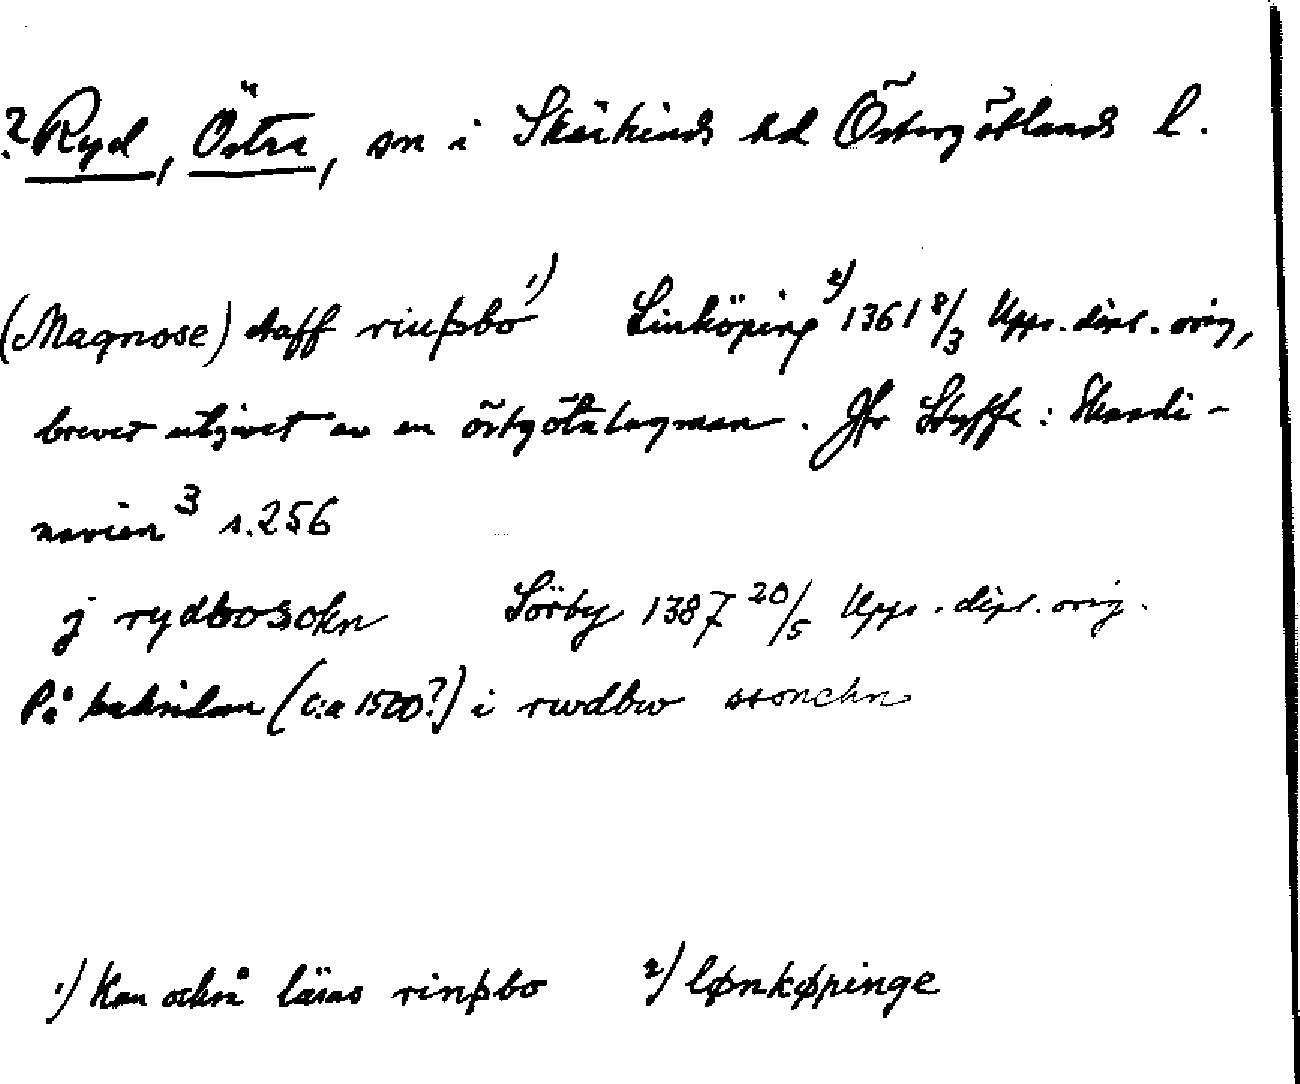 ? Ryd, Östra, sn i Skärkinds hd Östergötlands l.
(Magnose) staff riuþbo 1) Linköping 2) 1361 8/3 Upps. dipl. orig,
brevet utgivet av en östgötalagman. Jfr Styffe: Skandi-
navien 3 s. 256
j rydbosokn Sörby 1387 20/5 Upps. dipl. orig.
På baksidan (c:a 1500?) i rwdbw
1) Kan också läsas rinþbo 2) lønkøpinge